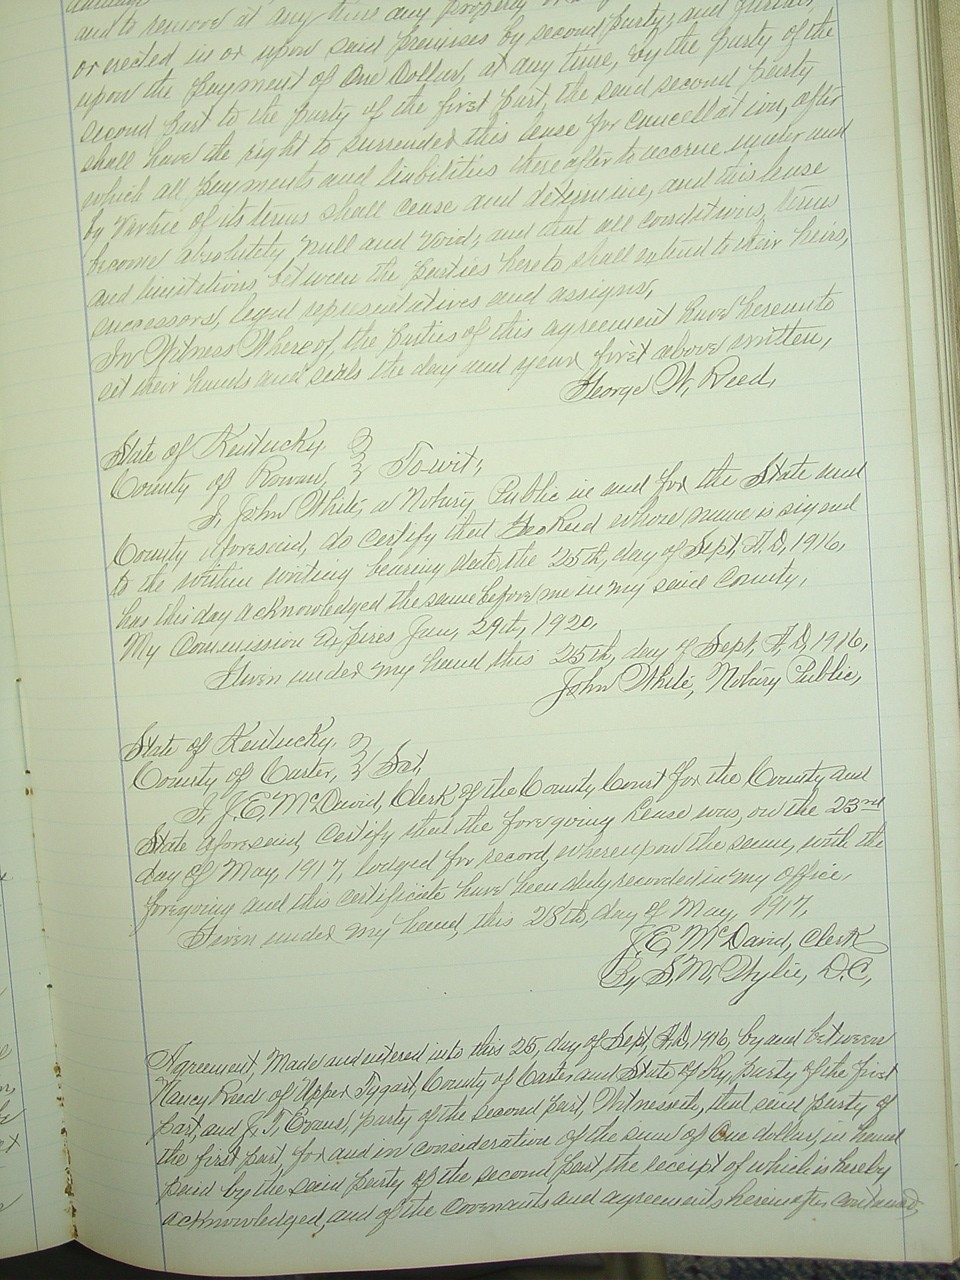 and to remove at any time any property
or erected in or upon said premises by second party, and further,
upon the payment of One Dollar, at any time, by the party of the
second part to the party of the first part, the said second party
shall have the right to surrender this lease for cancellation, after
which all payments and liabilities thereafter to accrue under and
by virtue of its terms shall cease and determine, and this lease
become absolutely null and void, and that all conditions, terms
and limitations between the parties hereto shall extend to their heirs,
successors, legal representatives and assigns,
In Witness Whereof, the parties of this agreement have hereunto
set their hands and seals the day and year first above written,
George W, Reed,
State of Kentucky,
County of Rowan, To-wit,
I, John White, a Notary Public in and for the State and
County aforesaid, do certify that Geo Reed whose name is signed
to the within writing bearing date the 25th, day of Sept, A.D, 1916,
has this day acknowledged the same before me in my said County,
My Commission Expires Jan, 29th, 1920,
Given under my hand this 25th, day of Sept, A,D, 1916,
John White, Notary Public,
State of Kentucky,
County of Carter, Sct,
I, J,E, McDavid, Clerk of the County Court for the County and
State aforesaid, certify that the foregoing Lease was, on the 23rd
day of May, 1917, lodged for record, whereupon the same, with the
foregoing and this certificate have been duly recorded in my office,
Given under my hand, this 28th, day of May, 1917,
J,E, McDavid, Clerk
By S,M, Wylie, D.C,
Agreement, Made and entered into this 25, day of Sept, A.D, 1916, by and between
Nancy Reed of Upper Tygart, County of Carter and State of Ky, party of the first
part, and J. T. Evans, party of the second part, Witnesseth, that said party of
the first part, for and in consideration of the sum of One dollar, in hand
paid by the said party of the second part, the receipt of which is hereby
acknowledged, and of the covenants and agreements hereinafter contained,